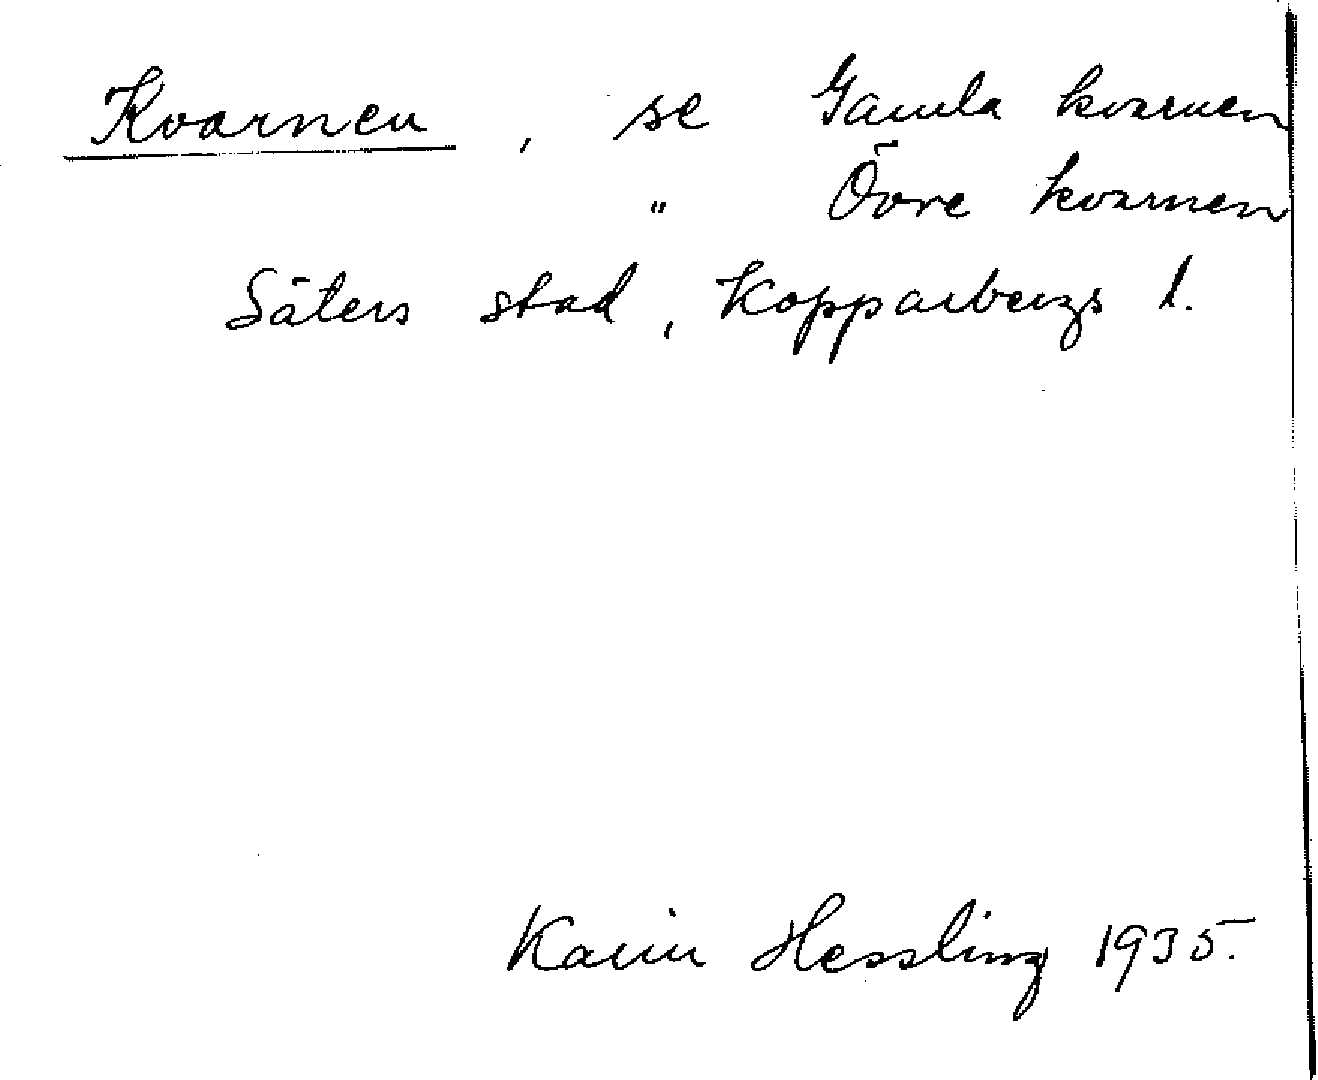 Kvarnen, se Gamla kvarnen
" Övre kvarnen
Säters stad, Kopparbergs l.
Karin Hessling 1935.